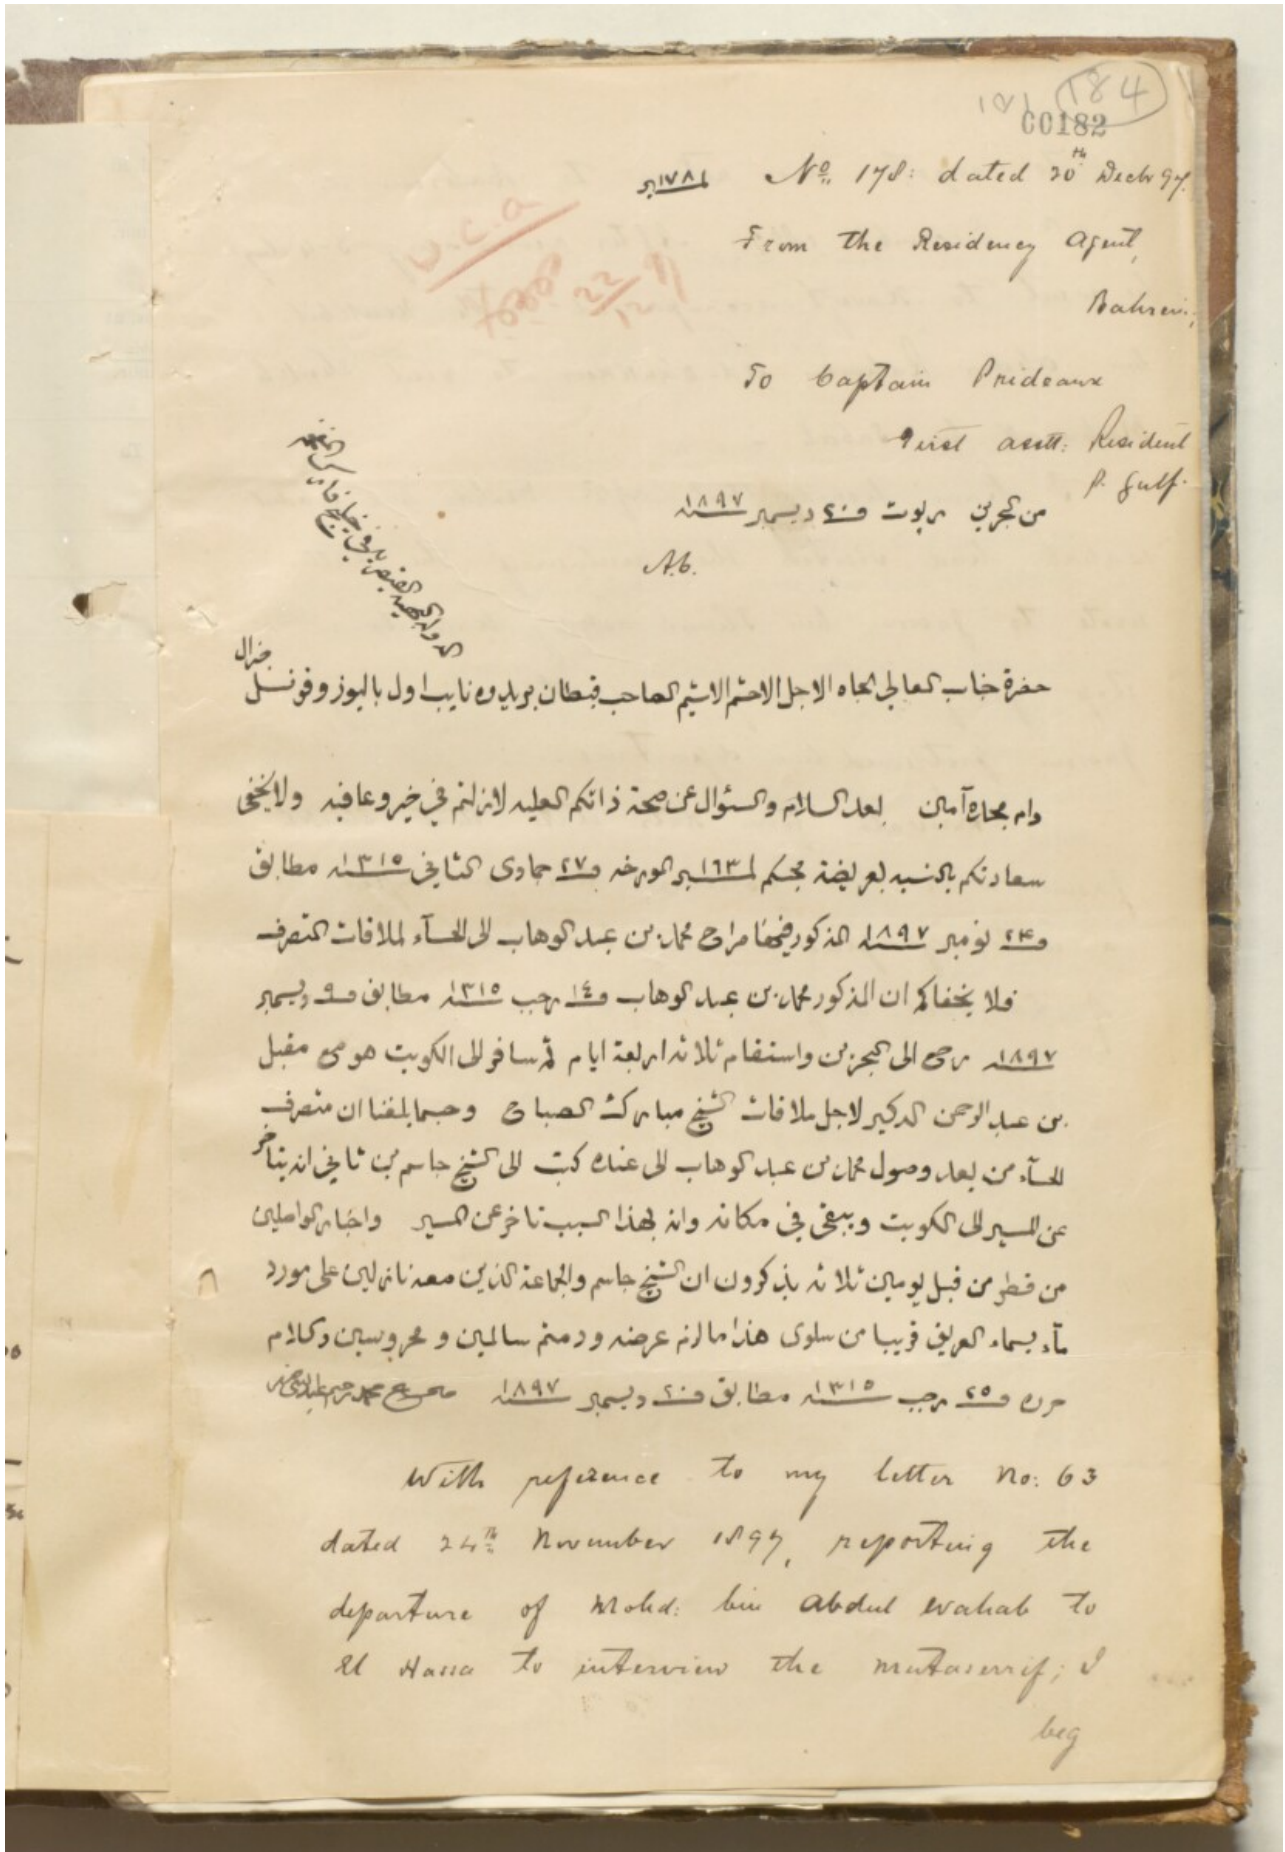 184
181
00182
لمـ١٧٨ـبر No. 178: dated 20th Decbr 97.
From the Residency Agent,
Bahrein,
To Captain Prideaux
First asstt: Resident
P. Gulf.
من البحرين ربوت في ٢٠ ديسمبر سنة ١٨٩٧
A.b.
الدولة البهية القيصرية في خليج فارس المفخم
حضرة جناب العالي الجاه الاجل الاحشم الاشيم الصاحب قبطان بريدوه نايب اول باليوز وقونسل جنرال
دام مجده آمين بعد السلام والسئوال عن صحة ذاتكم العليه لازلتم في خير وعافيه ولايخفى
سعادتكم بالنسبه لعريضة محبكم لمـ١٦٣ـبر المورخه في ٢٧ جمادى الثاني سنة ١٣١٥ مطابق
في ٢٤ نومبر سنة ١٨٩٧ المذكور فيها مراح محمد بن عبد الوهاب الى الحسآء لملاقات المتصرف
فلا يخفاكم ان المذكور محمد بن عبد الوهاب في ١٤ رجب سنة ١٣١٥ مطابق في ٩ ديسمبر
سنة ١٨٩٧ رجع الى البحرين واستقام ثلاثه اربعة ايام ثم سافر الى الكويت هو مع مقبل
بن عبد الرحمن الذكير لاجل ملاقات الشيخ مبارك الصباح وحسبما بلغنا ان متصرف
الحسآء من بعد وصول محمد بن عبد الوهاب الى عنده كتب الى الشيخ جاسم بن ثاني انه يتاخر
عن المسير الى الكويت ويبقى في مكانه وانه لهذا السبب تاخر عن المسير واخبار الواصلين
من قطر من قبل يومين ثلاثه يذكرون ان الشيخ جاسم والجماعة الذين معه نازلين على مورد
مآء يسماء العريق قريبا من سلوى هذا ما لزم عرضه ودمتم سالمين ومحروسين والسلام
حرره في ٢٥ رجب سنة ١٣١٥ مطابق في ٢٠ ديسمبر سنة ١٨٩٧ محمد رحيم
With reference to my letter No: 63
dated 24th November 1897, reporting the
departure of Mohd: bin Abdul Wahab to
El Hassa to interview the Mutaserrif; I
beg